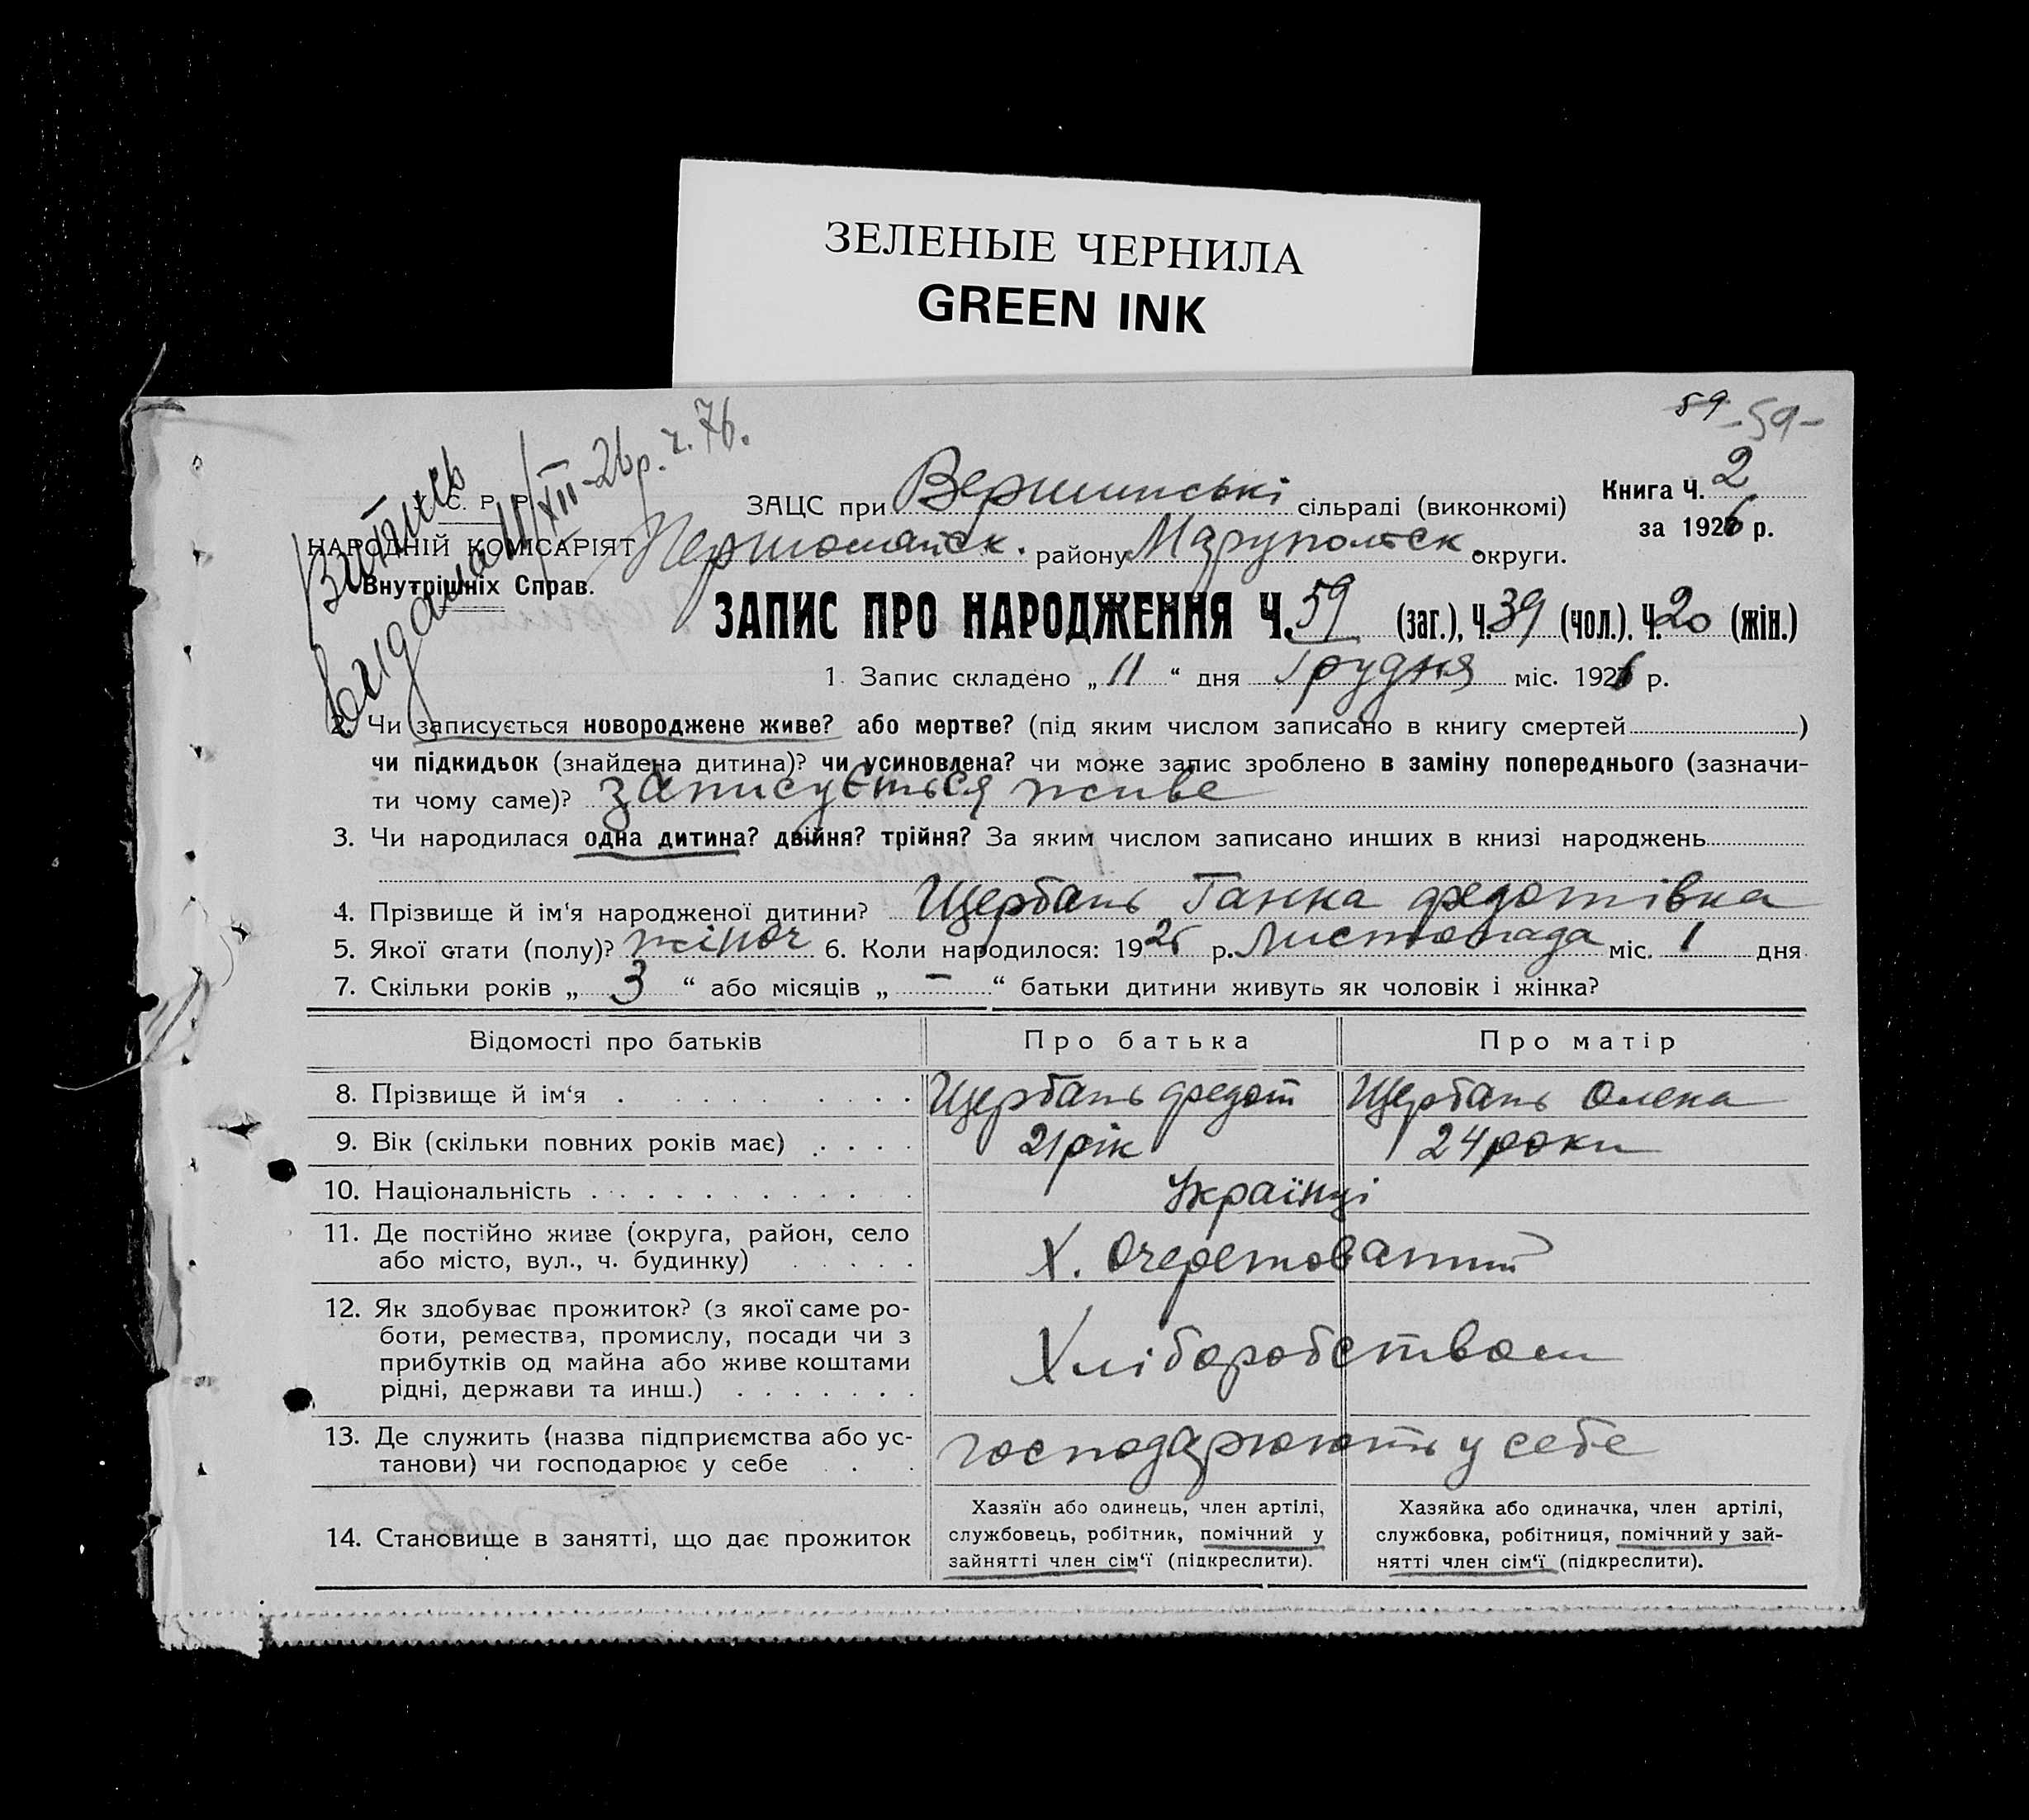 ЗЕЛЕНЫЕ ЧЕРНИЛА
GREEN INK
59 -59-
Витпись
видана 11/XII-26р. ч. 76.
У. С. Р. Р.
НАРОДНІЙ КОМІСАРІЯТ
Внутрішніх Справ.
ЗАЦС при Вершинські сільраді (виконкомі)
Книга Ч. 2
за 1926 р.
Першомайск. району Маруполіск. округи.
ЗАПИС ПРО НАРОДЖЕННЯ Ч. 59 (заг.), Ч. 39 (чол.). Ч. 20 (жін.)
1. Запис складено „ 11 “ дня Грудня міс. 1926 р.
2. Чи записується новороджене живе? або мертве? (під яким числом записано в книгу смертей )
чи підкидьок (знайдена дитина)? чи усиновлена? чи може запис зроблено в заміну попереднього (зазначи-
ти чому саме)? записується живе
3. Чи народилася одна дитина? двійня? трійня? За яким числом записано инших в книзі народжень
4. Прізвище й ім‘я народженої дитини? Щербань Ганна Федотівна
5. Якої стати (полу)? жіноч 6. Коли народилося: 1926 р. Листопада міс. 1 дня
7. Скільки років „ 3 “ або місяців „ — “ батьки дитини живуть як чоловік і жінка?
Відомості про батьків Про батька Про матір
8. Прізвище й ім‘я Щербань Федот Щербань Олена
9. Вік (скільки повних років має) 21 рік 24 роки
10. Національність Українці
11. Де постійно живе (округа, район, село
або місто, вул., ч. будинку) Х. Очеретоватий
12. Як здобуває прожиток? (з якої саме ро-
боти, ремества, промислу, посади чи з
прибутків од майна або живе коштами
рідні, держави та инш.) Хліборобством
13. Де служить (назва підприємства або ус-
танови) чи господарює у себе господарюють у себе
14. Становище в занятті, що дає прожиток
Хазяїн або одинець, член артілі,
службовець, робітник, помічний у
зайнятті член сім‘ї (підкреслити).
Хазяйка або одиначка, член артілі,
службовка, робітниця, помічний у зай-
нятті член сім‘ї (підкреслити).